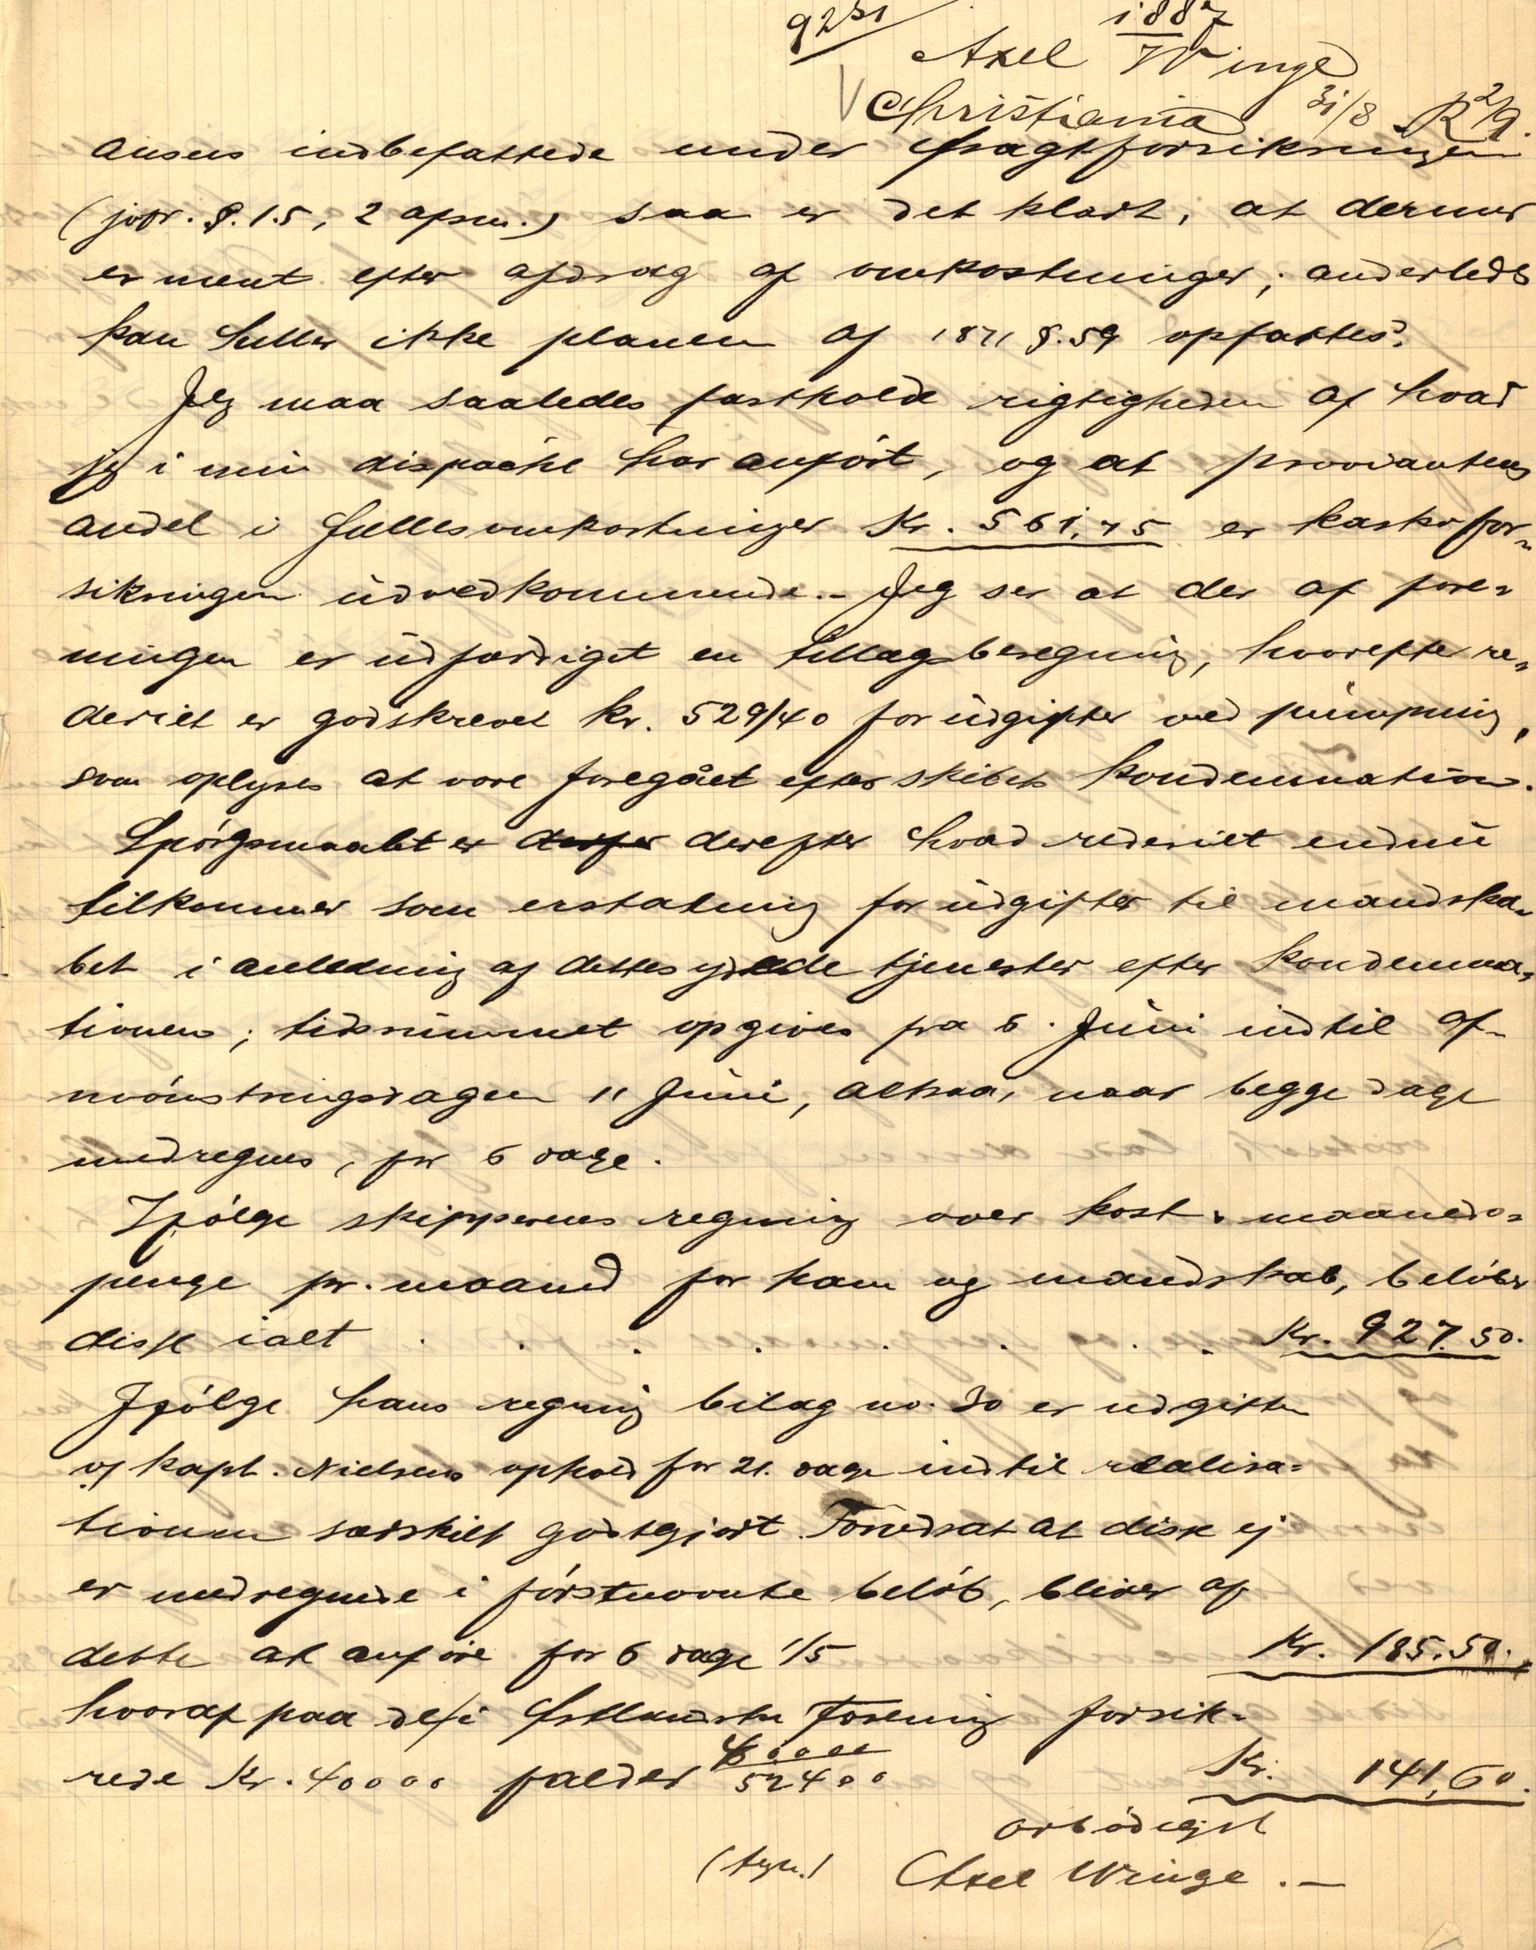 92 51
1887
Axel Winge
Christiania 31/8
ansees indbefattede under fragtforsikringen
(jvfr. §. 15, 2 afsn.) saa er det klart, at dermed
er ment efter afdrag af omkostninger; anderleds
kan heller ikke planen af 1871 §. 59 opfattes.
Jeg maa saaledes fastholde rigtigheden af hvad
jeg i min dispache har anført, og at proviantens
andel i fællesomkostninger Kr. 561,75 er kaskofor-
sikringen uvedkommende.- Jeg ser at der af fore-
ningen er udfærdiget en tillægsberegning, hvorefter re-
deriet er godskrevet kr. 529/40 for udgifter ved pumpning,
som oplyses at være foregået efter skibets kondemnation.
Spørgsmaalet er derefter hvad rederiet endnu
tilkommer som erstatning for udgifter til mandska-
bet i anledning af dettes ydede tjenester efter kondemna-
tionen; tidsrummet opgives fra 6. Juni indtil af-
mønstringsdagen 11 Juni, altsaa, naar begge dage
medregnes, for 6 dage.
Ifølge skipperens regning over kost & maaneds-
penge pr. maaned for ham og mandskab, beløber
disse ialt . . . . . . . Kr. 927.50.
Ifølge hans regning bilag no. 30 er udgiften
af kapt. Nielsens ophold for 21. dage indtil realisa-
tionen særskilt godtgjort. Forudsat at disse ej
er medregnede i førstnævnte beløb, bliver af
dette at anføre for 6 dage 1/5 Kr. 185.50.
hvoraf paa de i Østlandske Forening forsik-
rede Kr. 40000 falder 40000/52400 Kr. 141,60.
ærbødigst
(sign.) Axel Winge.-